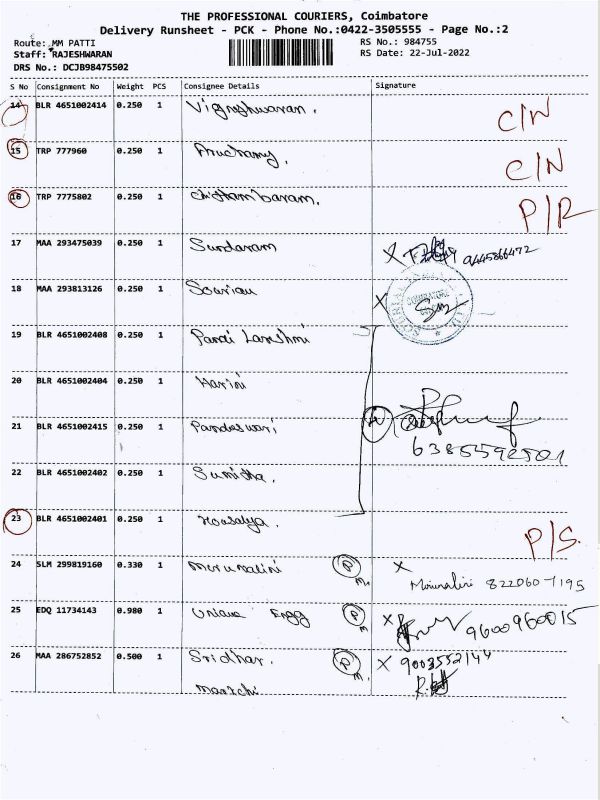 THE PROFESSIONAL COURIERS, Coimbatore
Delivery Runsheet - PCK - Phone No.:0422-3505555 - Page No.:2
Route: MM PATTI RS No.: 984755
Staff: RAJESHWARAN RS Date: 22-Jul-2022
DRS No.: DCJB98475502
S No Consignment No Weight PCS Consignee Details Signature
14 BLR 4651002414 0.250 1 Vigneshwaran. C/N
15 TRP 777960 0.250 1 C/N
16 TRP 7775802 0.250 1 Chithambaram. P/R
17 MAA 293475039 0.250 1 Sundaram X 9445866472
18 MAA 293813126 0.250 1 Sourian X
19 BLR 4651002408 0.250 1 Pandi Lakshmi
20 BLR 4651002404 0.250 1 Harini
21 BLR 4651002415 0.250 1 Pandeswari
6385592501
22 BLR 4651002402 0.250 1 Sumitha.
23 BLR 4651002401 0.250 1 Kousalya. P/S.
24 SLM 299819160 0.330 1 Mirunalini P M. X
Mirunalini 8220607195
25 EDQ 11734143 0.980 1 Unique Engg P M X 9600960015
26 MAA 286752852 0.500 1 Sridhar. P M. X 9003552144